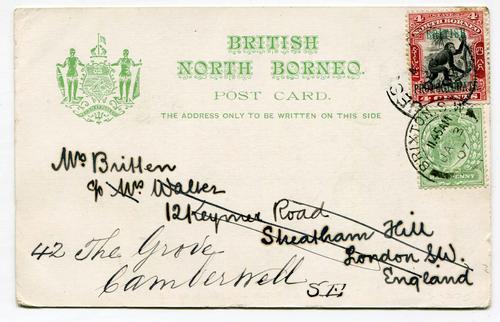 BRITISH
NORTH BORNEO.
POST CARD.
THE ADDRESS ONLY TO BE WRITTEN ON THIS SIDE
NORTH BORNEO
BRITISH
PROTECTORATE
4 CENTS 4
BRIXTON S.
11.45AM
07
PENNY
Mrs Britten
c/o Mrs Walker
12 Keymer Road
Streatham Hill
London SW.
England
42 The Grove
Camberwell SE